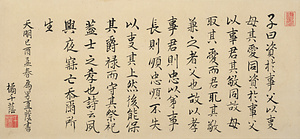 子曰資於事父以事
母其愛同資於事父
以事君其敬同故母
取其愛而君取其敬
兼之者父也故以孝
事君則忠以敬事
長則順忠順不失
以事其上然後能保
其爵祿而守其祭祀
蓋士之孝也詩云夙
興夜寐亡忝爾所
生
天明己酉孟春為
書
橘千蔭